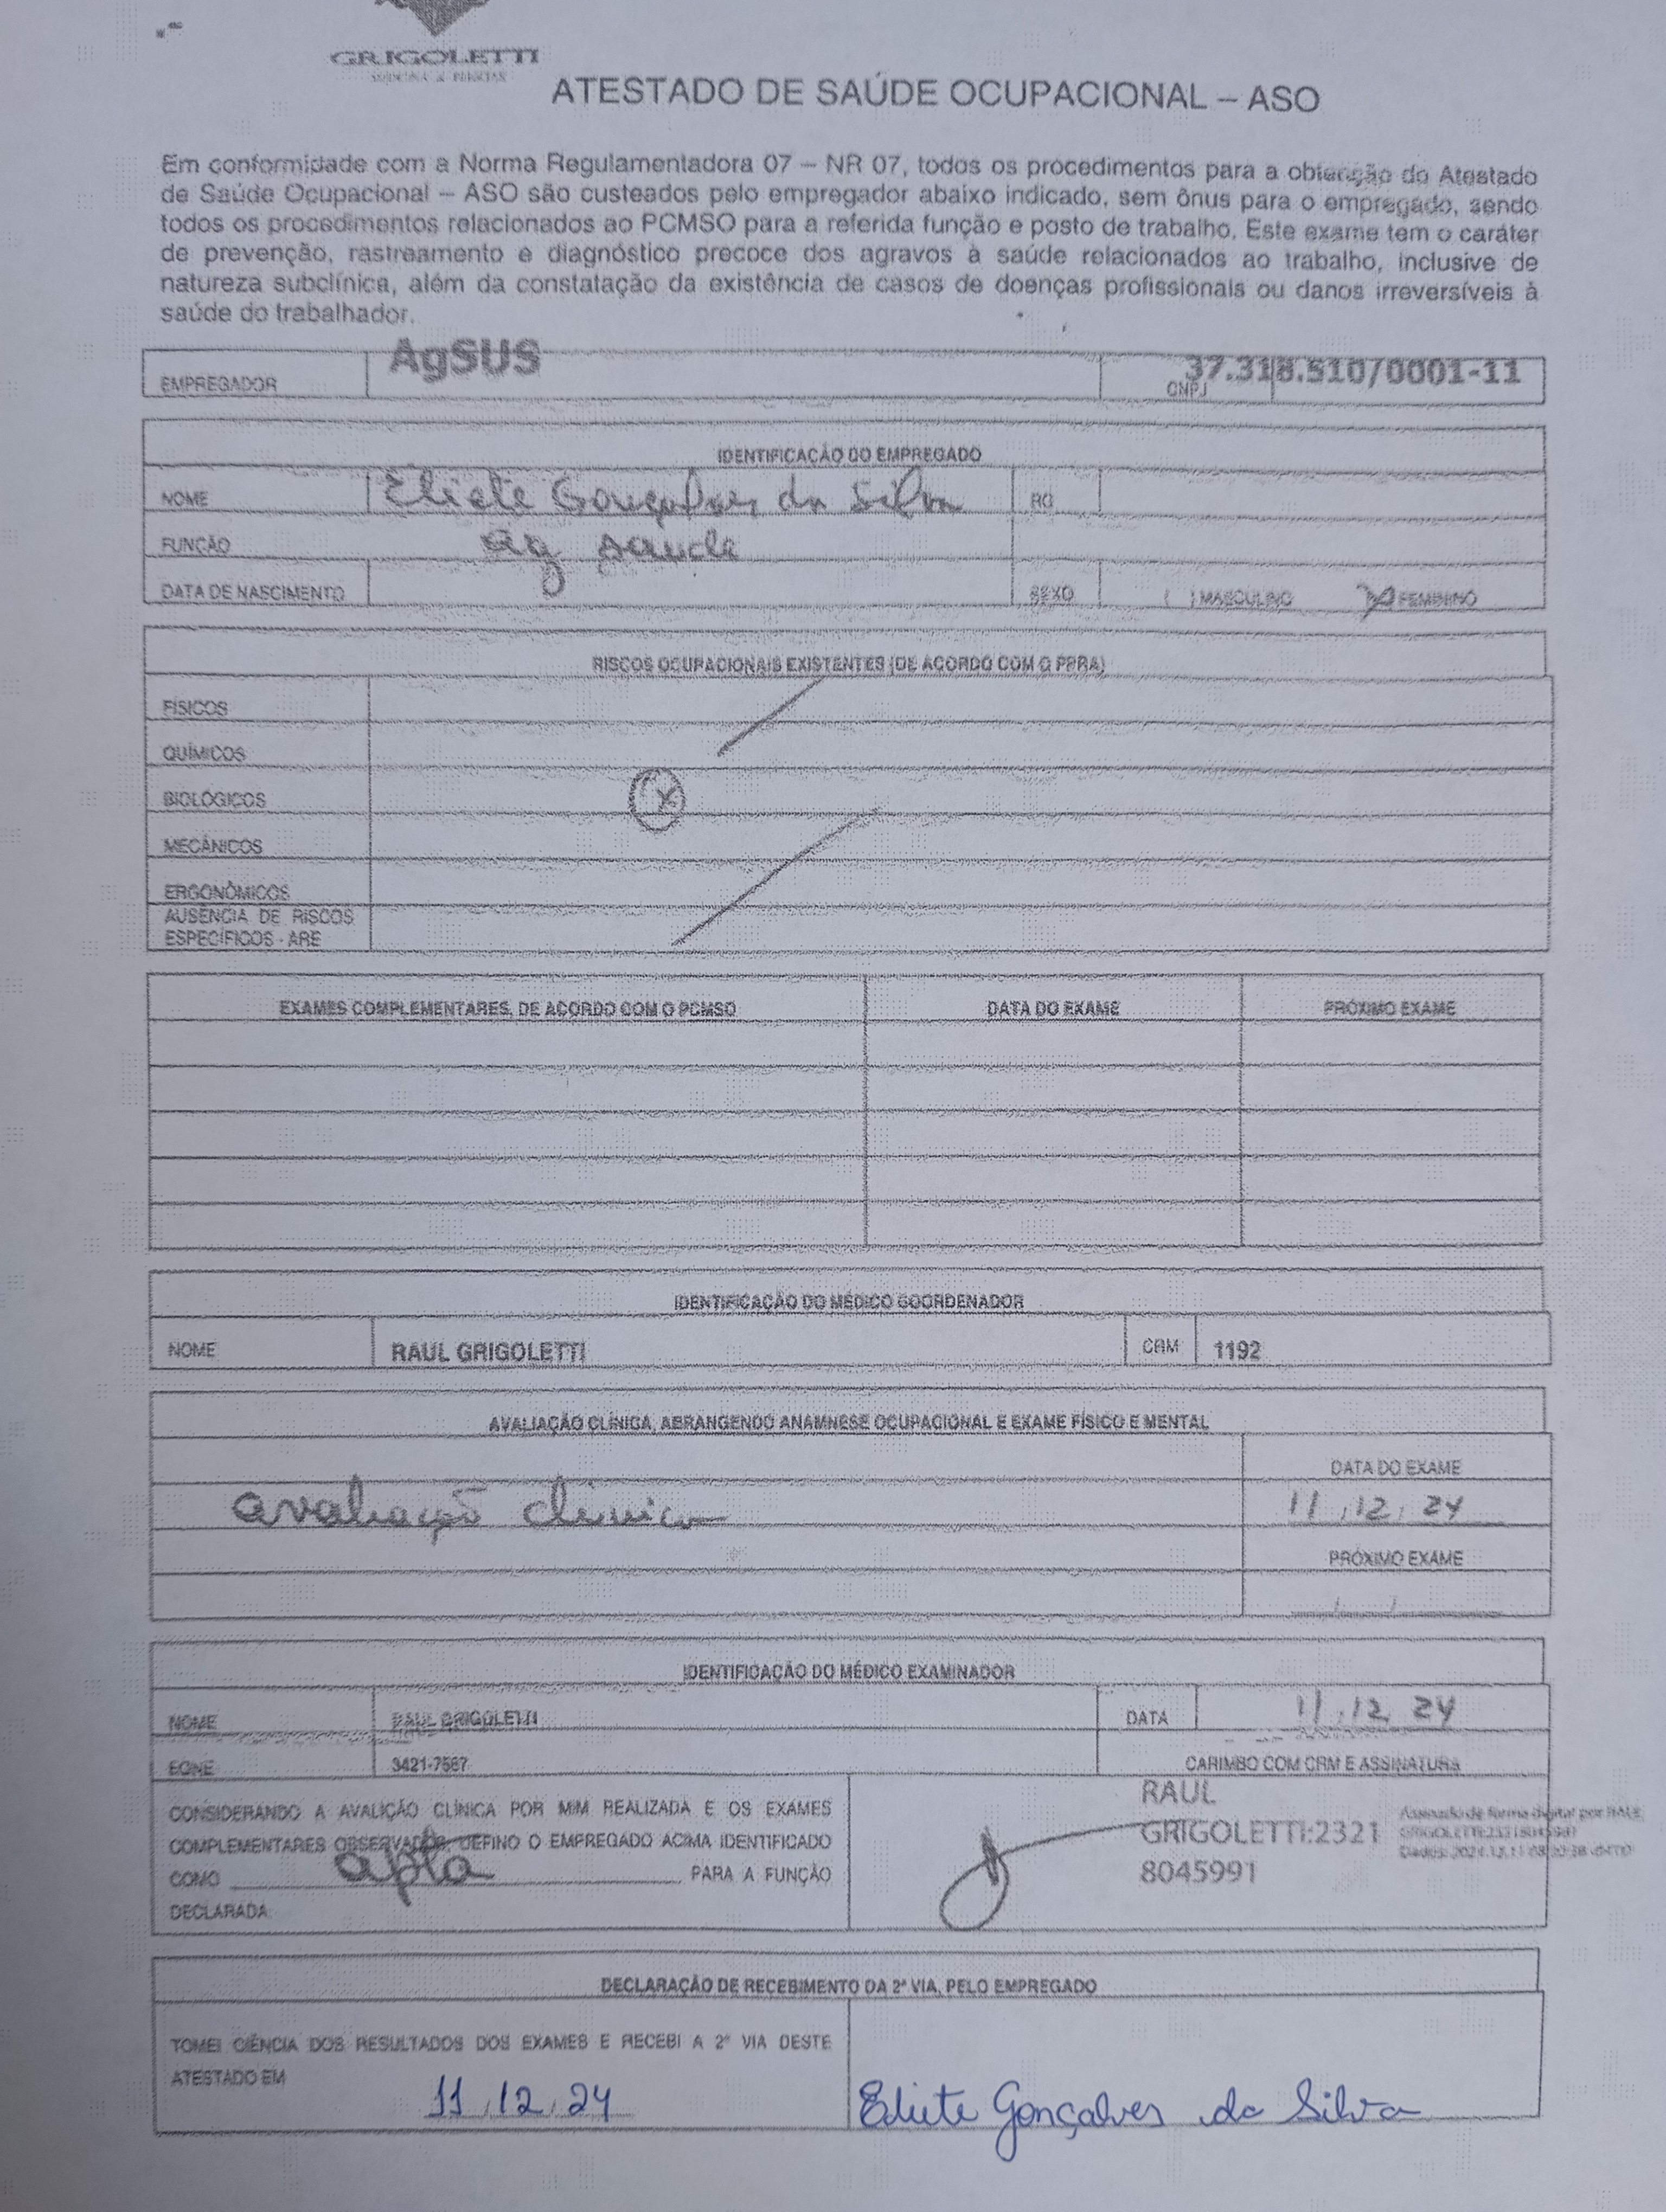 GRIGOLETTI
MEDICINA & PERÍCIAS
ATESTADO DE SAÚDE OCUPACIONAL – ASO
Em conformidade com a Norma Regulamentadora 07 – NR 07, todos os procedimentos para a obtenção do Atestado
de Saúde Ocupacional – ASO são custeados pelo empregador abaixo indicado, sem ônus para o empregado, sendo
todos os procedimentos relacionados ao PCMSO para a referida função e posto de trabalho. Este exame tem o caráter
de prevenção, rastreamento e diagnóstico precoce dos agravos à saúde relacionados ao trabalho, inclusive de
natureza subclínica, além da constatação da existência de casos de doenças profissionais ou danos irreversíveis à
saúde do trabalhador.
EMPREGADOR AgSUS CNPJ 37.318.510/0001-11
IDENTIFICAÇÃO DO EMPREGADO
NOME Eliete Gonçalves da Silva RG
FUNÇÃO ag saude
DATA DE NASCIMENTO SEXO ( ) MASCULINO (X) FEMININO
RISCOS OCUPACIONAIS EXISTENTES (DE ACORDO COM O PPRA)
FÍSICOS
QUÍMICOS
BIOLÓGICOS (X)
MECÂNICOS
ERGONÔMICOS
AUSÊNCIA DE RISCOS
ESPECÍFICOS - ARE
EXAMES COMPLEMENTARES, DE ACORDO COM O PCMSO DATA DO EXAME PRÓXIMO EXAME
IDENTIFICAÇÃO DO MÉDICO COORDENADOR
NOME RAUL GRIGOLETTI CRM 1192
AVALIAÇÃO CLÍNICA, ABRANGENDO ANAMNESE OCUPACIONAL E EXAME FÍSICO E MENTAL
DATA DO EXAME
avaliação clinica 11/12/24
PRÓXIMO EXAME
__/__/__
IDENTIFICAÇÃO DO MÉDICO EXAMINADOR
NOME RAUL GRIGOLETTI DATA 11/12/24
FONE 3421-7567 CARIMBO COM CRM E ASSINATURA
CONSIDERANDO A AVALIÇÃO CLÍNICA POR MIM REALIZADA E OS EXAMES
COMPLEMENTARES OBSERVADOS, DEFINO O EMPREGADO ACIMA IDENTIFICADO
COMO apta PARA A FUNÇÃO
DECLARADA.
RAUL
GRIGOLETTI:2321
8045991
Assinado de forma digital por RAUL
GRIGOLETTI:23218045991
DECLARAÇÃO DE RECEBIMENTO DA 2ª VIA, PELO EMPREGADO
TOMEI CIÊNCIA DOS RESULTADOS DOS EXAMES E RECEBI A 2ª VIA DESTE
ATESTADO EM
11/12/24 Eliete Gonçalves da Silva